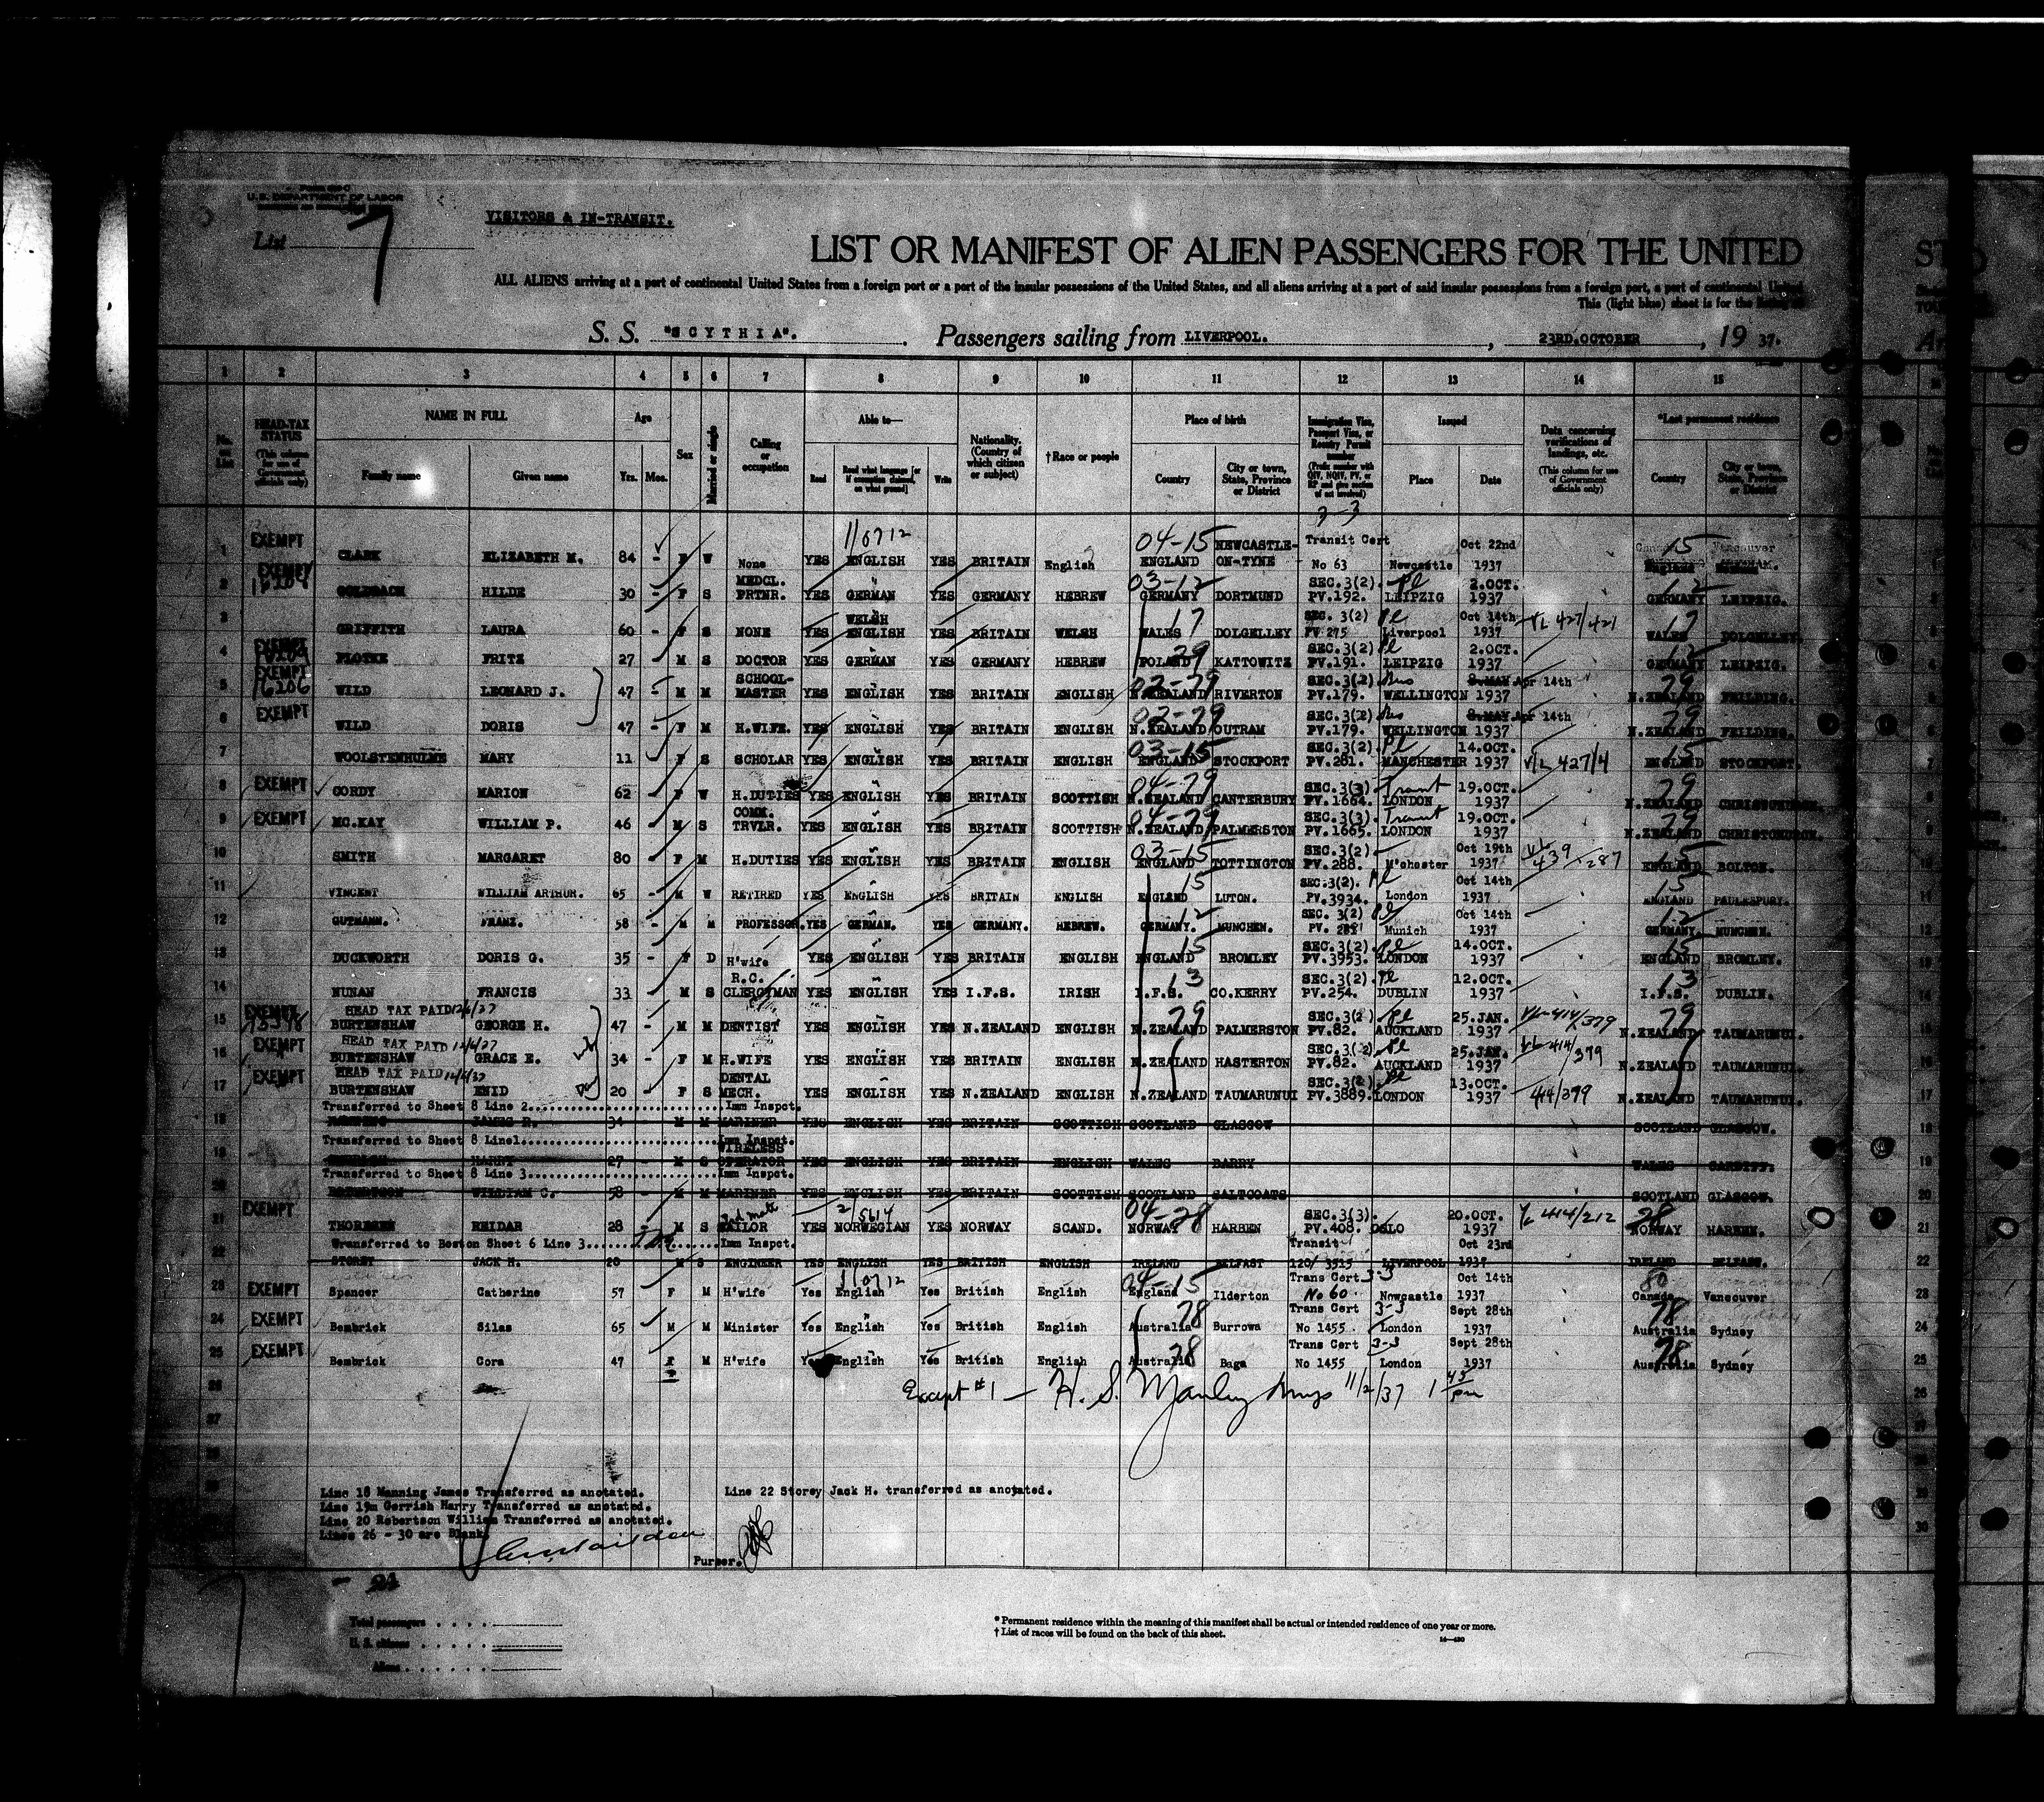 U.S. DEPARTMENT OF LABOR
List 7
VISITORS & IN-TRANSIT.
LIST OR MANIFEST OF ALIEN PASSENGERS FOR THE UNITED
ALL ALIENS arriving at a port of continental United States from a foreign port or a port of the insular possessions of the United States, and all aliens arriving at a port of said insular possessions from a foreign port, a port of continental United
This (light blue) sheet is for the listing of
S. S. "SCYTHIA". Passengers sailing from LIVERPOOL. , 23RD.OCTOBER , 19 37.
1 2 3 4 5 6 7 8 9 10 11 12 13 14 15
No. on List
HEAD-TAX STATUS (This column for use of Government officials only)
NAME IN FULL Family name Given name
Age Yrs. Mos.
Sex
Married or single
Calling or occupation
Able to— Read Read what language [or if exemption claimed, on what ground] Write
Nationality. (Country of which citizen or subject)
†Race or people
Place of birth Country City or town, State, Province or District
Immigration Visa, Passport Visa, or Reentry Permit number (Prefix number with QIV, NQIV, PV, or RP and give section of act involved)
Issued Place Date
Data concerning verifications of landings, etc. (This column for use of Government officials only)
*Last permanent residence Country City or town, State, Province or District
3-3
1 EXEMPT CLARK ELIZABETH M. 84 - F W None YES ENGLISH 110712 YES BRITAIN English 04-15 ENGLAND NEWCASTLE-ON-TYNE Transit Cert No 63 Newcastle Oct 22nd 1937 15 Vancouver
2 EXEMPT GOLDBACH HILDE 30 - F S MEDCL. PRTNR. YES GERMAN YES GERMANY HEBREW 03-12 GERMANY DORTMUND SEC.3(2). PV.192. LEIPZIG 2.OCT. 1937 12 GERMANY LEIPZIG.
3 GRIFFITH LAURA 60 - F S NONE YES WELSH ENGLISH YES BRITAIN WELSH 17 WALES DOLGELLEY SEC. 3(2) PV 275 Liverpool Oct 14th 1937 VL 427/421 17 WALES DOLGELLEY.
4 EXEMPT PLOTKE FRITZ 27 M S DOCTOR YES GERMAN YES GERMANY HEBREW POLAND KATTOWITZ SEC.3(2) PV.191. LEIPZIG 2.OCT. 1937 12 GERMANY LEIPZIG.
5 EXEMPT 16206 WILD LEONARD J. 47 - M M SCHOOL-MASTER YES ENGLISH YES BRITAIN ENGLISH 02-79 N.ZEALAND RIVERTON SEC.3(2). PV.179. WELLINGTON 8.MAY Apr 14th 1937 79 N.ZEALAND FEILDING.
6 EXEMPT WILD DORIS 47 F M H.WIFE. YES ENGLISH YES BRITAIN ENGLISH 02-79 N.ZEALAND OUTRAM SEC.3(2) PV.179. WELLINGTON 8.MAY Apr 14th 1937 79 N.ZEALAND FEILDING.
7 WOOLSTENHULME MARY 11 F S SCHOLAR YES ENGLISH YES BRITAIN ENGLISH 03-15 ENGLAND STOCKPORT SEC.3(2). PV.281. MANCHESTER 14.OCT. 1937 V/L 427/4 15 ENGLAND STOCKPORT.
8 EXEMPT CORDY MARION 62 F W H.DUTIES YES ENGLISH YES BRITAIN SCOTTISH 04-79 N.ZEALAND CANTERBURY SEC.3(3). PV.1664. Transit LONDON 19.OCT. 1937 79 N.ZEALAND CHRISTCHURCH.
9 EXEMPT MC.KAY WILLIAM P. 46 M S COMM. TRVLR. YES ENGLISH YES BRITAIN SCOTTISH 04-79 N.ZEALAND PALMERSTON SEC.3(3). PV.1665. Transit LONDON 19.OCT. 1937 79 N.ZEALAND CHRISTCHURCH.
10 SMITH MARGARET 80 F M H.DUTIES YES ENGLISH YES BRITAIN ENGLISH 03-15 ENGLAND TOTTINGTON SEC.3(2) PV.288. M'chester Oct 19th 1937 VL 439/287 15 ENGLAND BOLTON.
11 VINCENT WILLIAM ARTHUR. 65 - M W RETIRED YES ENGLISH YES BRITAIN ENGLISH 15 ENGLAND LUTON. SEC.3(2). PV.3934. London Oct 14th 1937 15 ENGLAND PAULESPURY.
12 GUTMANN. FRANZ. 58 - M M PROFESSOR. YES GERMAN. YES GERMANY. HEBREW. 12 GERMANY. MUNCHEN. SEC. 3(2) PV. Munich Oct 14th 1937 12 GERMANY. MUNCHEN.
13 DUCKWORTH DORIS G. 35 - F D H'wife YES ENGLISH YES BRITAIN ENGLISH 15 ENGLAND BROMLEY SEC.3(2). PV.3953. LONDON 14.OCT. 1937 15 ENGLAND BROMLEY.
14 NUNAN FRANCIS 33 M S R.C. CLERGYMAN YES ENGLISH YES I.F.S. IRISH 13 I.F.S. CO.KERRY SEC.3(2). PV.254. DUBLIN 12.OCT. 1937 13 I.F.S. DUBLIN.
HEAD TAX PAID 12/6/37
15 EXEMPT BURTENSHAW GEORGE H. 47 - M M DENTIST YES ENGLISH YES N.ZEALAND ENGLISH 79 N.ZEALAND PALMERSTON SEC.3(2) PV.82. AUCKLAND 25.JAN. 1937 VL-414/379 79 N.ZEALAND TAUMARUNUI.
HEAD TAX PAID 12/6/37
16 EXEMPT BURTENSHAW GRACE E. 34 - F M H.WIFE YES ENGLISH YES BRITAIN ENGLISH N.ZEALAND HASTERTON SEC.3(2). PV.82. AUCKLAND 25.JAN. 1937 VL 414/379 N.ZEALAND TAUMARUNUI.
HEAD TAX PAID 12/6/37
17 EXEMPT BURTENSHAW ENID 20 F S DENTAL MECH. YES ENGLISH YES N.ZEALAND ENGLISH N.ZEALAND TAUMARUNUI SEC.3(2). PV.3889. LONDON 13.OCT. 1937 414/399 N.ZEALAND TAUMARUNUI.
Transferred to Sheet 8 Line 2..............................Imm Inspct.
18 JAMES R. 34 - M M MARINER YES ENGLISH YES BRITAIN SCOTTISH SCOTLAND GLASGOW SCOTLAND GLASGOW.
Transferred to Sheet 8 Line1..............................Imm Inspct.
19 HARRY 27 - M S WIRELESS OPERATOR YES ENGLISH YES BRITAIN ENGLISH WALES BARRY WALES CARDIFF.
Transferred to Sheet 8 Line 3..............................Imm Inspct.
20 ROBERTSON WILLIAM C. 58 - M M MARINER YES ENGLISH YES BRITAIN SCOTTISH SCOTLAND SALTCOATS SCOTLAND GLASGOW.
21 EXEMPT THORESEN REIDAR 28 - M S 2nd mate SAILOR YES NORWEGIAN 2/5614 YES NORWAY SCAND. 04-28 NORWAY HARBEN SEC.3(3). PV.408. OSLO 20.OCT. 1937 VL 414/212 28 NORWAY HAREEN.
Transferred to Boston Sheet 6 Line 3..............Imm Inspct.
22 STOREY JACK H. 28 M S ENGINEER YES ENGLISH YES BRITISH ENGLISH IRELAND BELFAST Transit 120/ 3515 LIVERPOOL Oct 23rd 1937 IRELAND BELFAST.
23 EXEMPT Spencer Catherine 57 F M H'wife Yes English 110712 Yes British English 04-15 England Ilderton Trans Cert 3-3 No 60 Newcastle Oct 14th 1937 80 Canada Vancouver
24 EXEMPT Bembrick Silas 65 M M Minister Yes English Yes British English 78 Australia Burrowa Trans Cert 3-3 No 1455 London Sept 28th 1937 78 Australia Sydney
25 EXEMPT Bembrick Cora 47 F M H'wife Yes English Yes British English 78 Australia Baga Trans Cert 3-3 No 1455 London Sept 28th 1937 78 Australia Sydney
26 Except #1 — H. S. Manley Insp 11/2/37 1 45 pm
27
28
29
30
Line 18 Manning James Transferred as anotated. Line 22 Storey Jack H. transferred as anotated.
Line 19m Gerrish Harry Transferred as anotated.
Line 20 Robertson William Transferred as anotated.
Lines 26 - 30 are Blank
Purser.
Total passengers
U. S. citizens
Aliens
* Permanent residence within the meaning of this manifest shall be actual or intended residence of one year or more.
† List of races will be found on the back of this sheet.